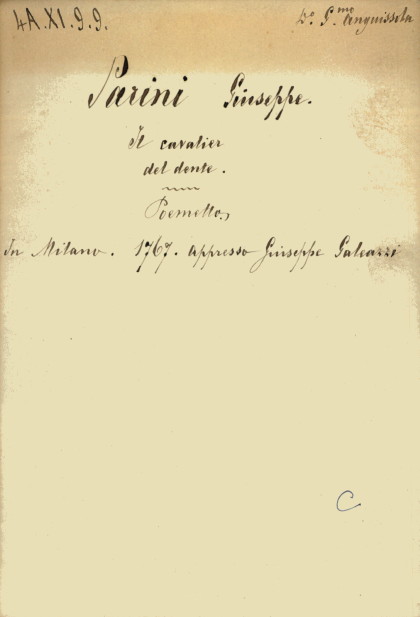 4A.XI.9.9.
Do. G.mo Anguissola
Parini Giuseppe.
Il cavalier
del dente.
Poemetto.
In Milano. 1767. appresso Giuseppe Galeazzi
C